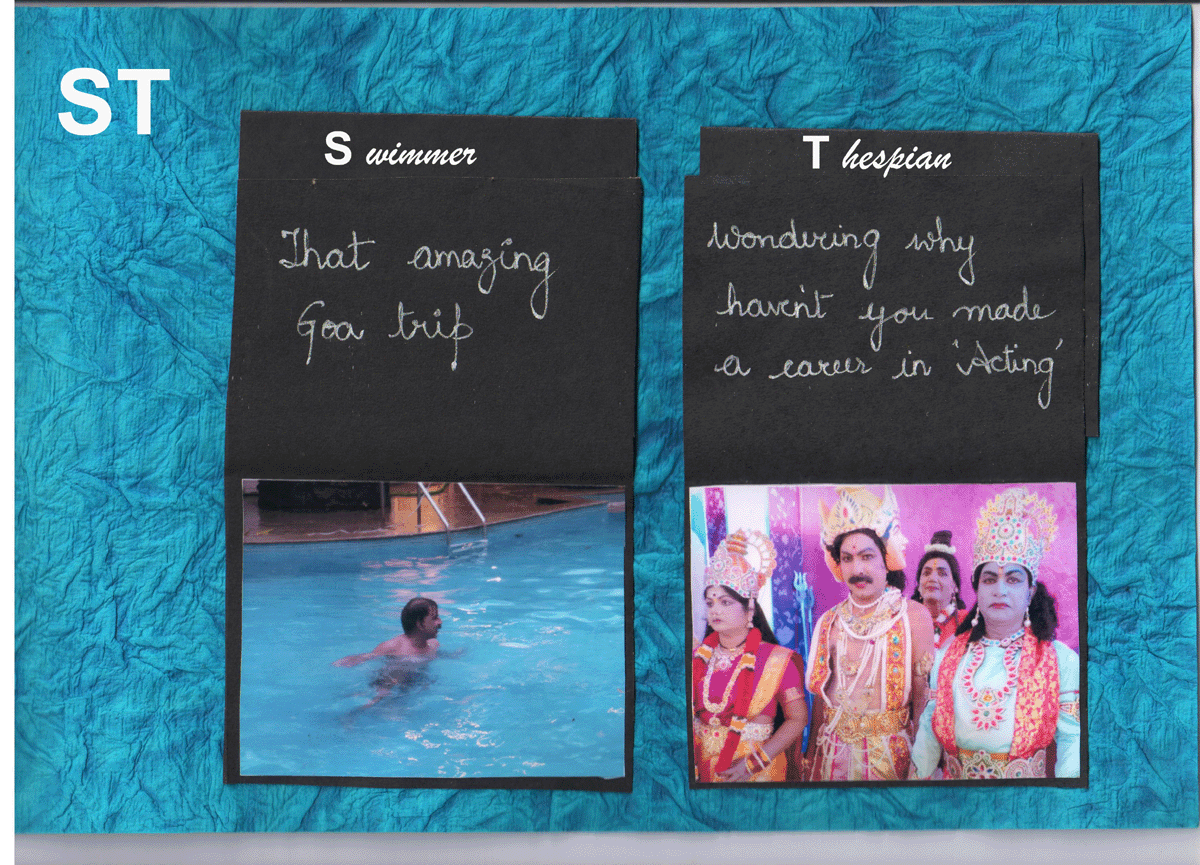 ST
Swimmer
That amazing
Goa trip
Thespian
Wondering why
haven't you made
a career in 'Acting'